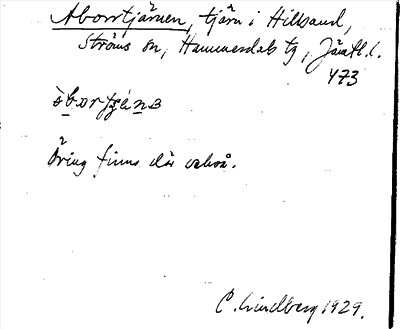 Abborrtjärnen, tjärn i Hillsand,
Ströms sn, Hammerdals tg, Jämtl. l.
473
Öring finns där också.
C. Lindberg 1929.